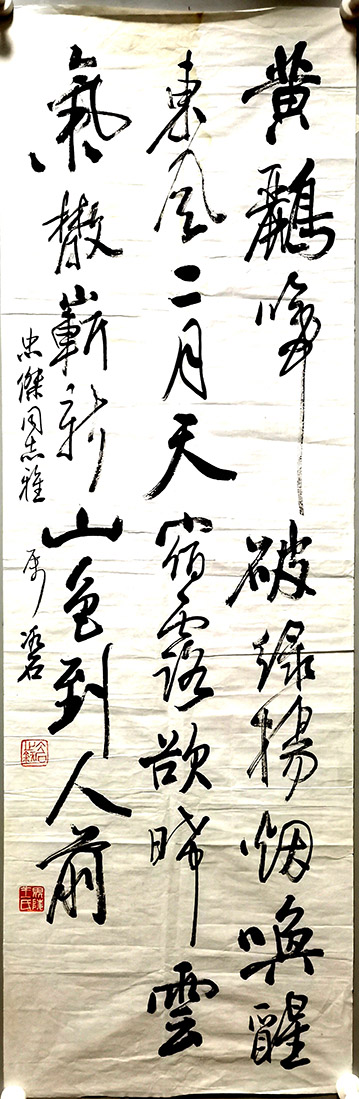 黄鸝啼破綠楊烟喚醒
東風二月天宿露欲晞雲
氣散嶄新山色到人前
忠傑同志雅
屬